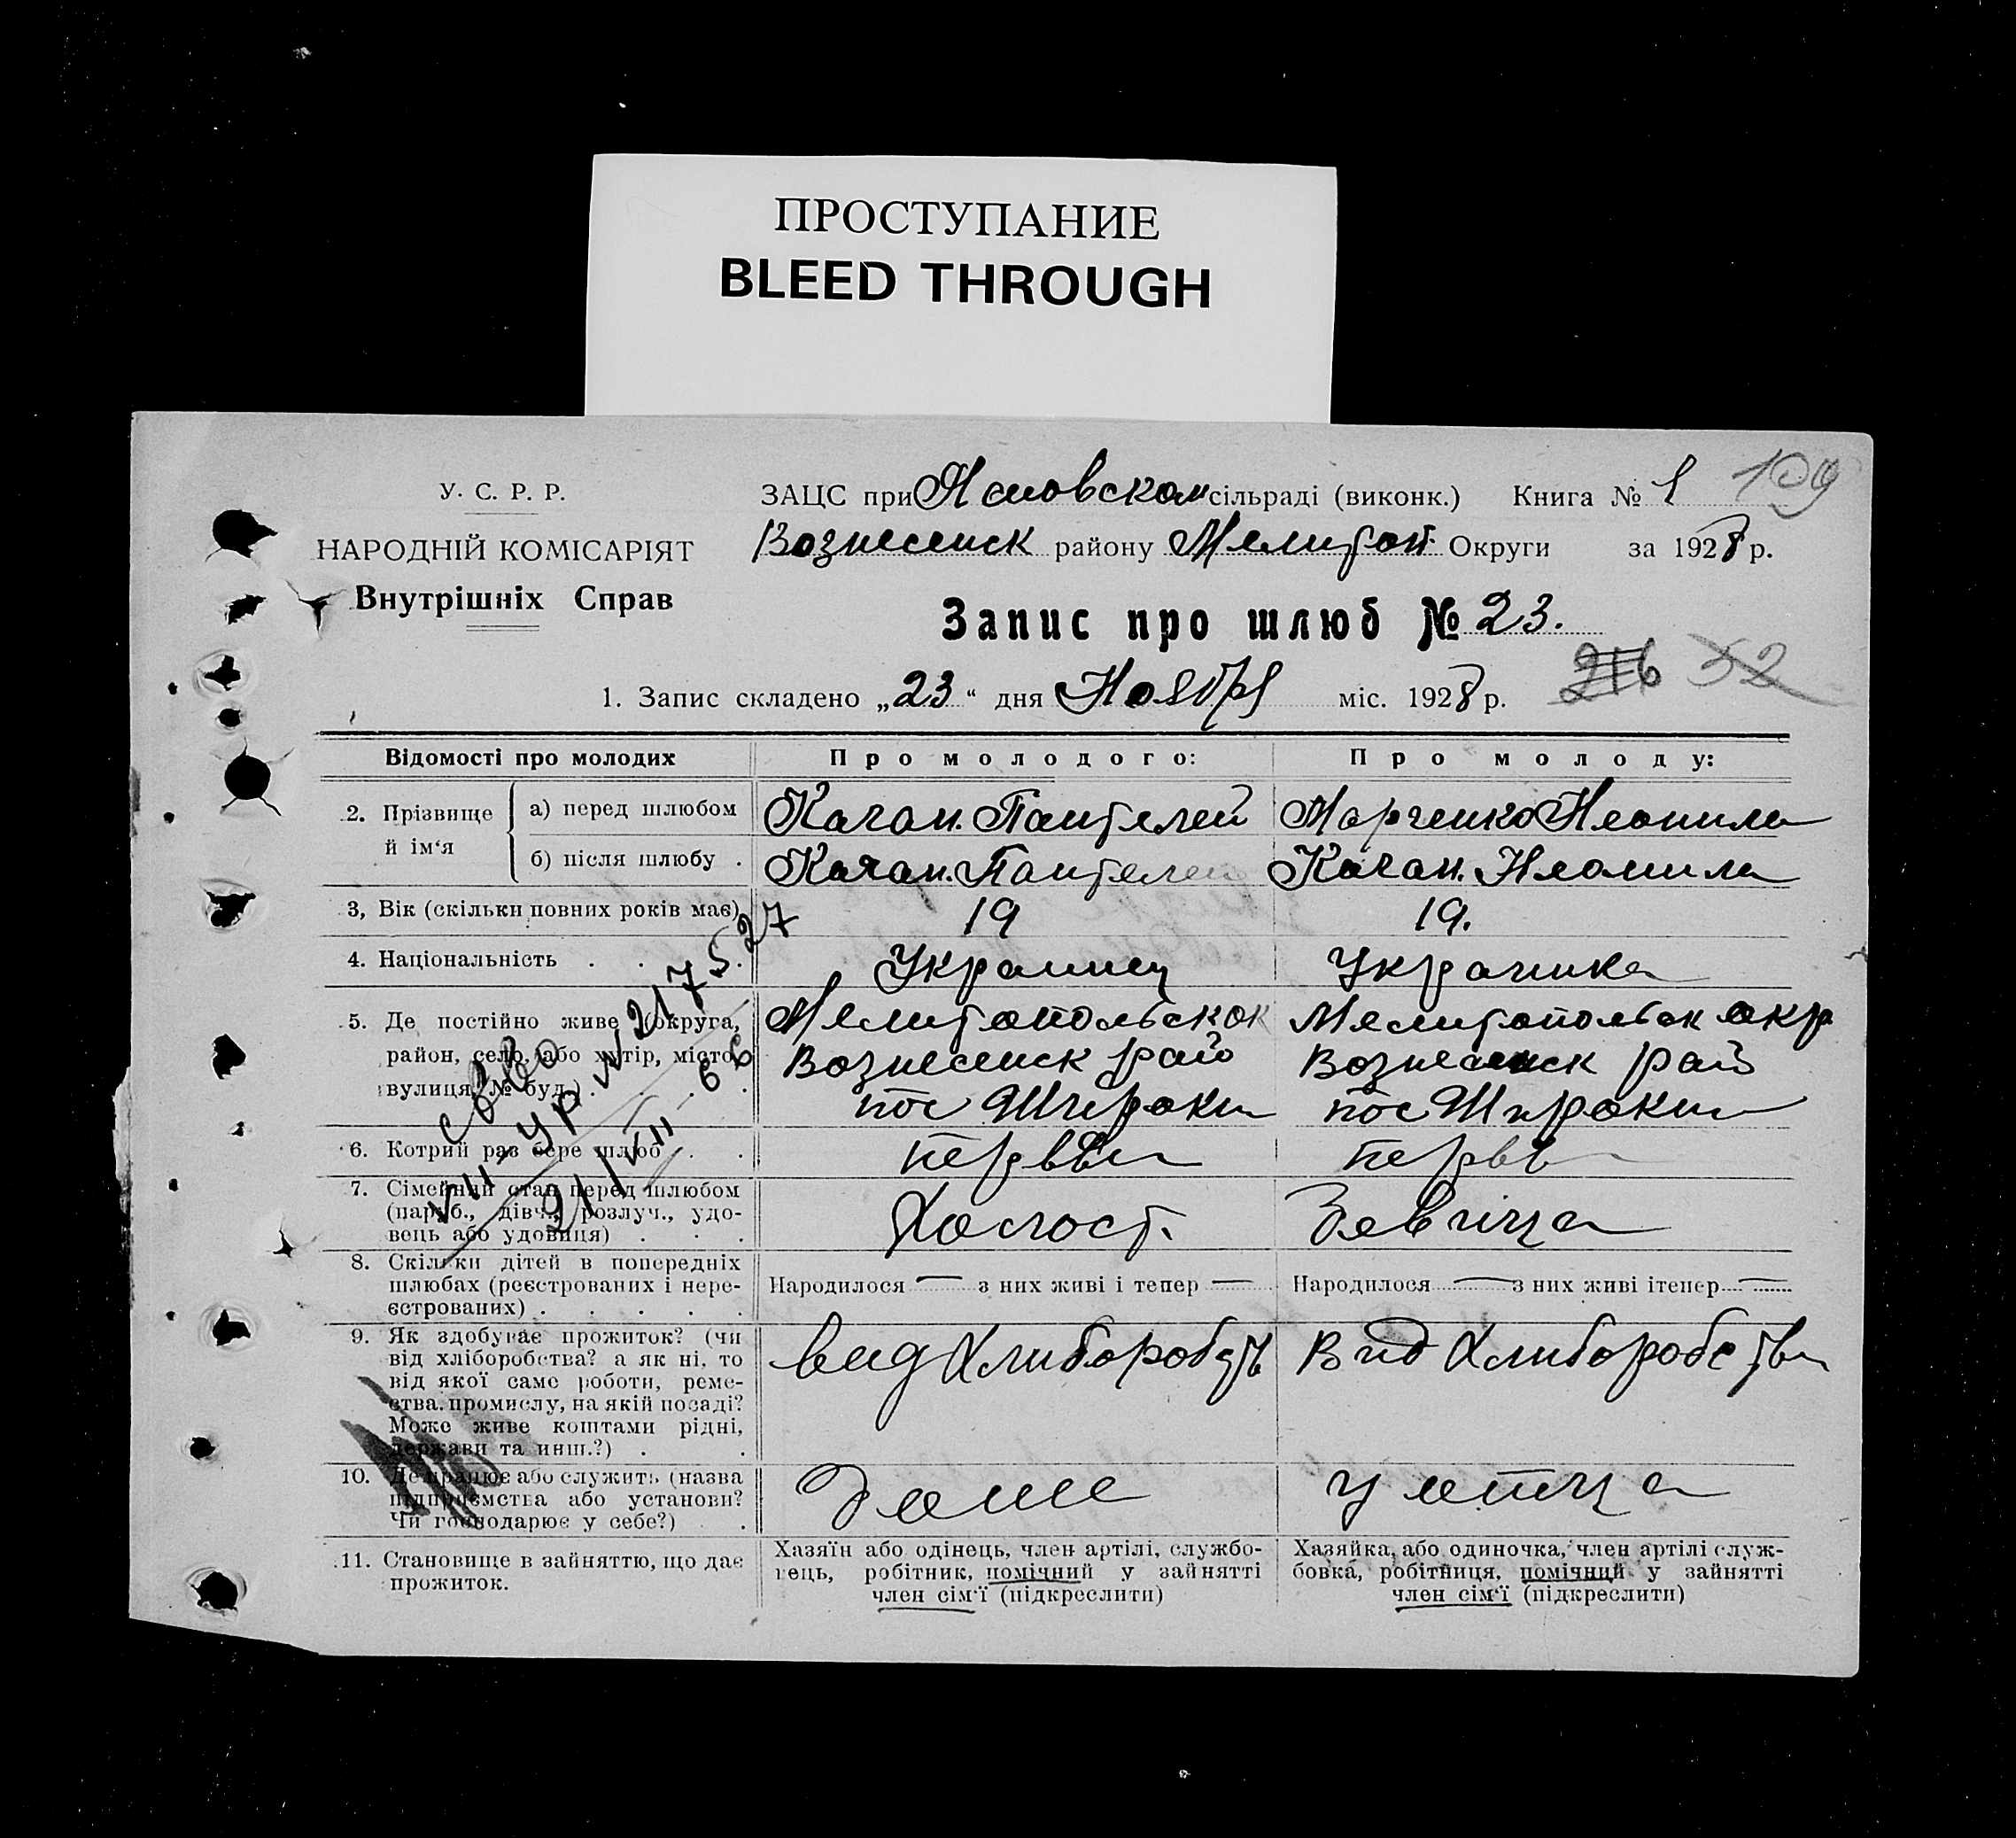 ПРОСТУПАНИЕ
BLEED THROUGH
У. С. Р. Р.
НАРОДНІЙ КОМІСАРІЯТ
Внутрішніх Справ
ЗАЦС при сільраді (виконк.) Книга № 1 109
Вознесенск району Мелитоп. Округи за 1928 р.
Запис про шлюб № 23.
1. Запис складено „23“ дня Ноября міс. 1928 р.
216 52
Відомості про молодих
Про молодого:
Про молоду:
2. Прізвище й ім‘я
а) перед шлюбом
Качан. Пантелей
Марченко Неонила
б) після шлюбу .
Качан. Пантелей
Качан. Неонила
3, Вік (скільки повних років має)
19
19.
4. Національність . . . .
Украинец
Украинка
5. Де постійно живе (округа,
район, село, або хутір, місто,
вулиця, № буд.) . . . .
Мелитопольск ок
Вознесенск рай
пос Широки
Мелитопольск окр
Вознесенск рай
пос Широки
6. Котрий раз бере шлюб . .
первы
первы
7. Сімейний стан перед шлюбом
(паруб., дівч., розлуч., удо-
вець або удовиця) . . .
Холост.
Девица
8. Скільки дітей в попередніх
шлюбах (реєстрованих і нере-
єстрованих) . . . . .
Народилося — з них живі і тепер —
Народилося — з них живі ітепер —
9. Як здобуває прожиток? (чи
від хліборобства? а як ні, то
від якої саме роботи, реме-
ства, промислу, на якій посаді?
Може живе коштами рідні,
держави та инш.?) . .
вид Хлиборобств
Вид Хлиборобства
10. Де працює або служить (назва
підприємства або установи?
Чи господарює у себе?) .
Доме
у отца
11. Становище в зайняттю, що дає
прожиток.
Хазяїн або одінець, член артілі, службо-
вець, робітник, помічний у зайнятті
член сім‘ї (підкреслити)
Хазяйка, або одиночка, член артілі служ-
бовка, робітниця, помічний у зайнятті
член сім‘ї (підкреслити)
VII-УР № 217527
21/VII 66